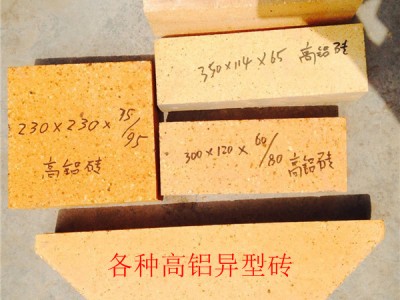 350×114×65 高铝砖
230×230×75/95
高铝砖
300×120×60/80 高铝砖
各种高铝异型砖